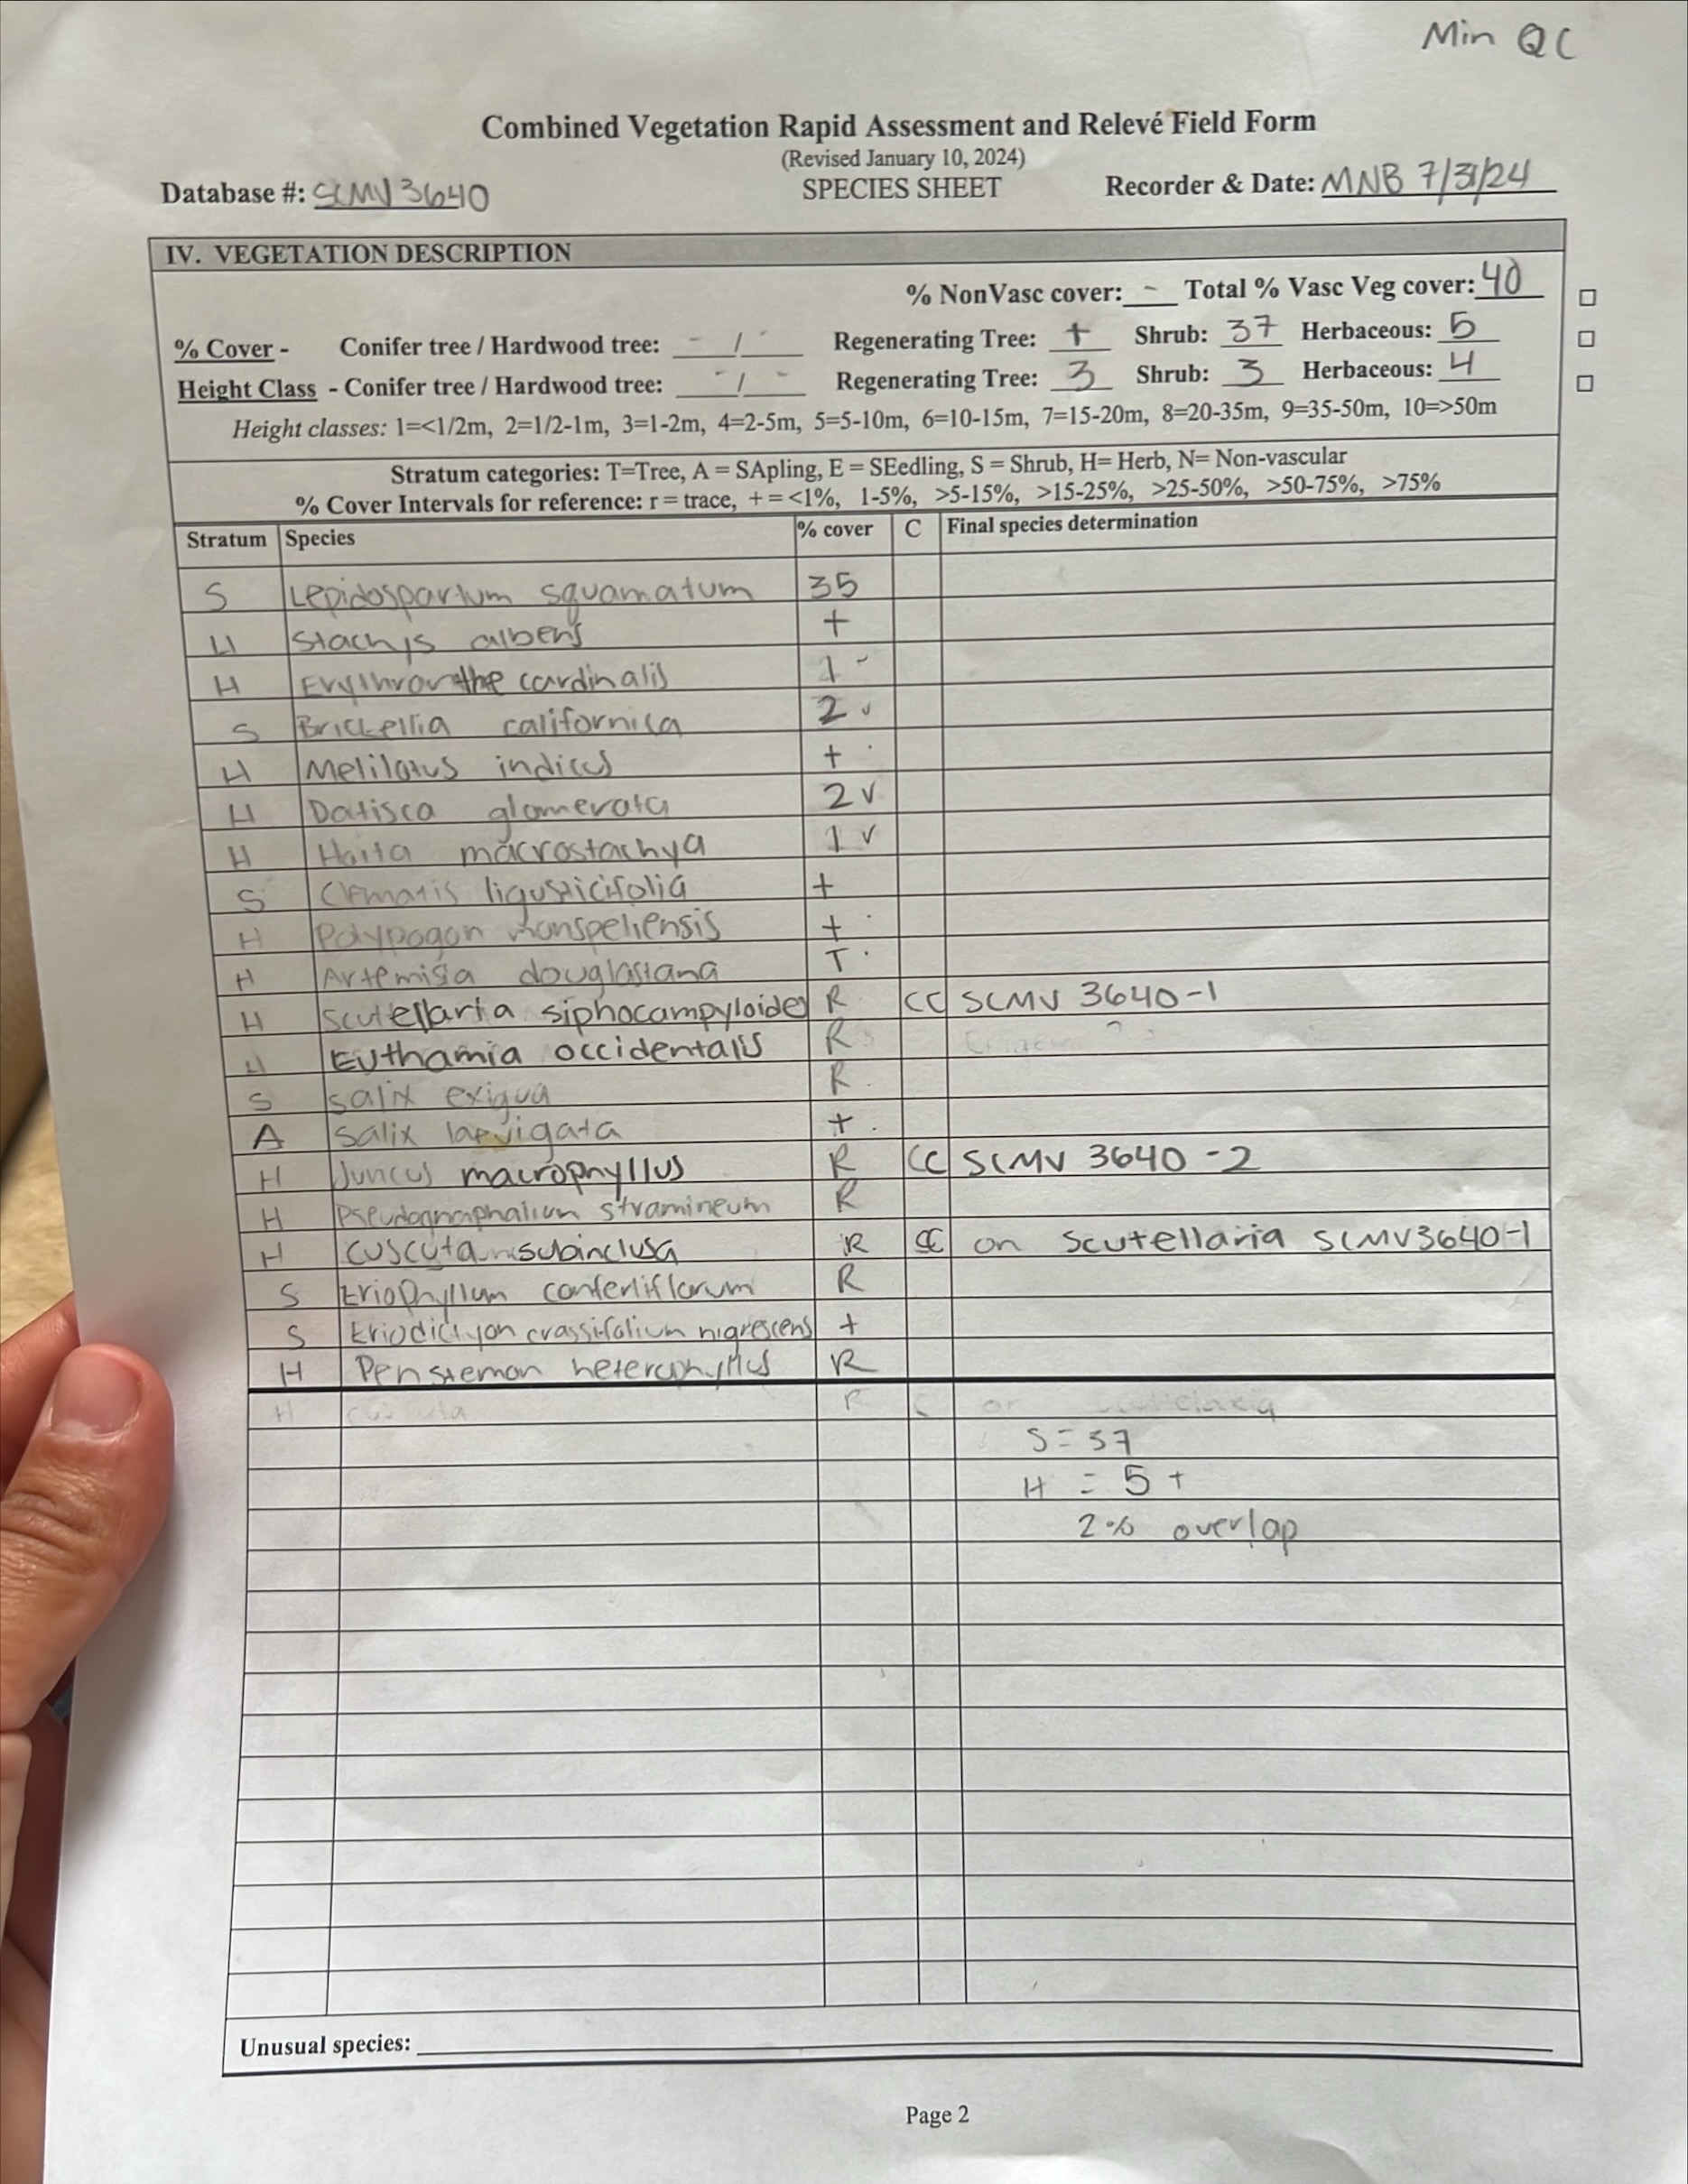 Min QC
Combined Vegetation Rapid Assessment and Relevé Field Form
(Revised January 10, 2024)
Database #: SCMV3640 SPECIES SHEET Recorder & Date: MNB 7/31/24
IV. VEGETATION DESCRIPTION
% NonVasc cover: - Total % Vasc Veg cover: 40
% Cover - Conifer tree / Hardwood tree: - / - Regenerating Tree: + Shrub: 37 Herbaceous: 5
Height Class - Conifer tree / Hardwood tree: - / - Regenerating Tree: 3 Shrub: 3 Herbaceous: 4
Height classes: 1=<1/2m, 2=1/2-1m, 3=1-2m, 4=2-5m, 5=5-10m, 6=10-15m, 7=15-20m, 8=20-35m, 9=35-50m, 10=>50m
Stratum categories: T=Tree, A = SApling, E = SEedling, S = Shrub, H= Herb, N= Non-vascular
% Cover Intervals for reference: r = trace, + = <1%, 1-5%, >5-15%, >15-25%, >25-50%, >50-75%, >75%
Stratum Species % cover C Final species determination
S Lepidospartum squamatum 35
H Stachys albens +
H Erythranthe cardinalis 1
S Brickellia californica 2
H Melilotus indicus +
H Datisca glomerata 2 ✓
H Hoita macrostachya 1 ✓
S Clematis ligusticifolia +
H Polypogon monspeliensis +
H Artemisia douglasiana T
H Scutellaria siphocampyloides R CC SCMV 3640-1
H Euthamia occidentalis R
S Salix exigua R
A Salix laevigata +
H Juncus macrophyllus R CC SCMV 3640-2
H Pseudognaphalium stramineum R
H Cuscuta subinclusa R CC on Scutellaria SCMV3640-1
S Eriophyllum confertiflorum R
S Eriodictyon crassifolium nigrescens +
H Penstemon heterophyllus R
S = 37
H = 5 +
2% overlap
Unusual species:
Page 2